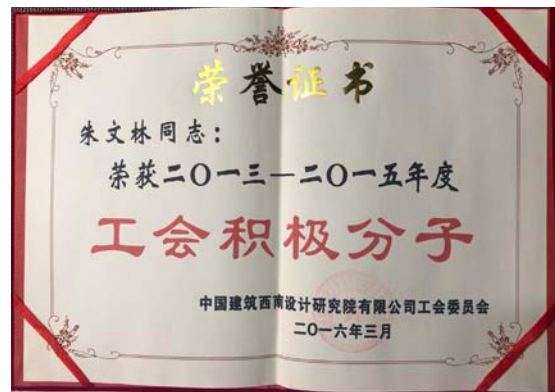 荣誉证书
朱文林同志：
荣获二〇一三—二〇一五年度
工会积极分子
中国建筑西南设计研究院有限公司工会委员会
二〇一六年三月